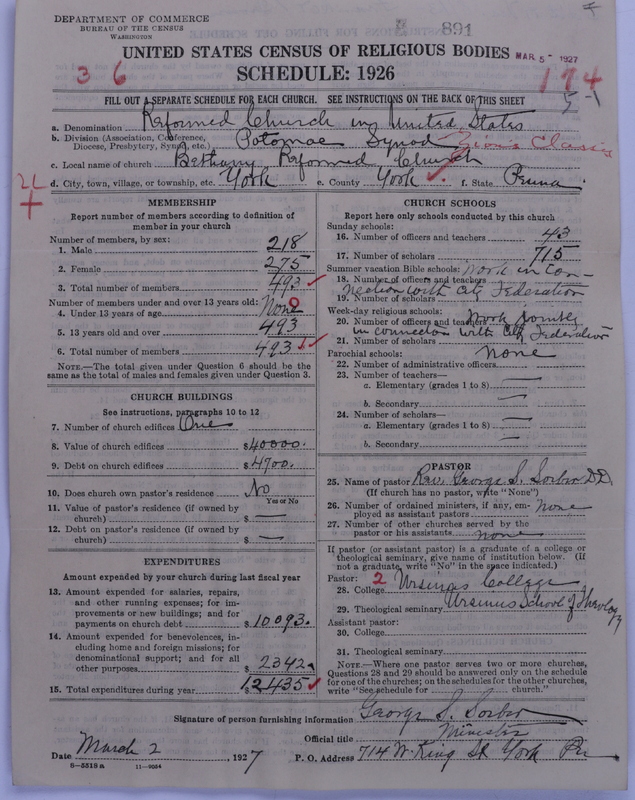 DEPARTMENT OF COMMERCE
BUREAU OF THE CENSUS
WASHINGTON
891
UNITED STATES CENSUS OF RELIGIOUS BODIES
MAR 5 - 1927
3 6
SCHEDULE: 1926
174
FILL OUT A SEPARATE SCHEDULE FOR EACH CHURCH. SEE INSTRUCTIONS ON THE BACK OF THIS SHEET
5-1
a. Denomination Reformed Church in United States
b. Division (Association, Conference, Diocese, Presbytery, Synod, etc.) Potomac Synod Zions Classis
c. Local name of church Bethany Reformed Church
d. City, town, village, or township, etc. York e. County York f. State Penna
MEMBERSHIP
Report number of members according to definition of
member in your church
Number of members, by sex:
1. Male 218
2. Female 275
3. Total number of members 493
Number of members under and over 13 years old:
4. Under 13 years of age None 0
5. 13 years old and over 493
6. Total number of members 493
NOTE.—The total given under Question 6 should be
same as the total of males and females given under Question 3.
CHURCH BUILDINGS
See instructions, paragraphs 10 to 12
7. Number of church edifices One
8. Value of church edifices $40000.
9. Debt on church edifices $4700.
10. Does church own pastor's residence No
Yes or No
11. Value of pastor's residence (if owned by
church) $ —
12. Debt on pastor's residence (if owned by
church) $ —
EXPENDITURES
Amount expended by your church during last fiscal year
13. Amount expended for salaries, repairs,
and other running expenses; for im-
provements or new buildings; and for
payments on church debt $10093.
14. Amount expended for benevolences,
including home and foreign missions; for
denominational support; and for all
other purposes $2342
15. Total expenditures during year $12435
CHURCH SCHOOLS
Report here only schools conducted by this church
Sunday schools:
16. Number of officers and teachers 43
17. Number of scholars 715
Summer vacation Bible schools: Work in con-
18. Number of officers and teachers
nection with City Federation
19. Number of scholars
Week-day religious schools:
20. Number of officers and teachers Work jointly
in connection with City Federation
21. Number of scholars
Parochial schools: none
22. Number of administrative officers
23. Number of teachers—
a. Elementary (grades 1 to 8) —
b. Secondary —
24. Number of scholars—
a. Elementary (grades 1 to 8) —
b. Secondary —
PASTOR
25. Name of pastor Rev. George S. Sorber D.D.
(If church has no pastor, write "None")
26. Number of ordained ministers, if any, em-
ployed as assistant pastors none
27. Number of other churches served by the
pastor or his assistants none
If pastor (or assistant pastor) is a graduate of a college or
theological seminary, give name of institution below. (If
not a graduate, write "No" in the space indicated.)
Pastor: 2
28. College Ursinus College
29. Theological seminary Ursinus School of Theology
Assistant pastor:
30. College
31. Theological seminary
NOTE.—Where one pastor serves two or more churches,
Questions 28 and 29 should be answered only on the schedule
for one of the churches; on the schedules for the other churches,
write "See schedule for church."
Signature of person furnishing information George S. Sorber
Official title Minister
Date March 2, 1927 P. O. Address 714 W. King St York Pa
8-5518a 11-9034